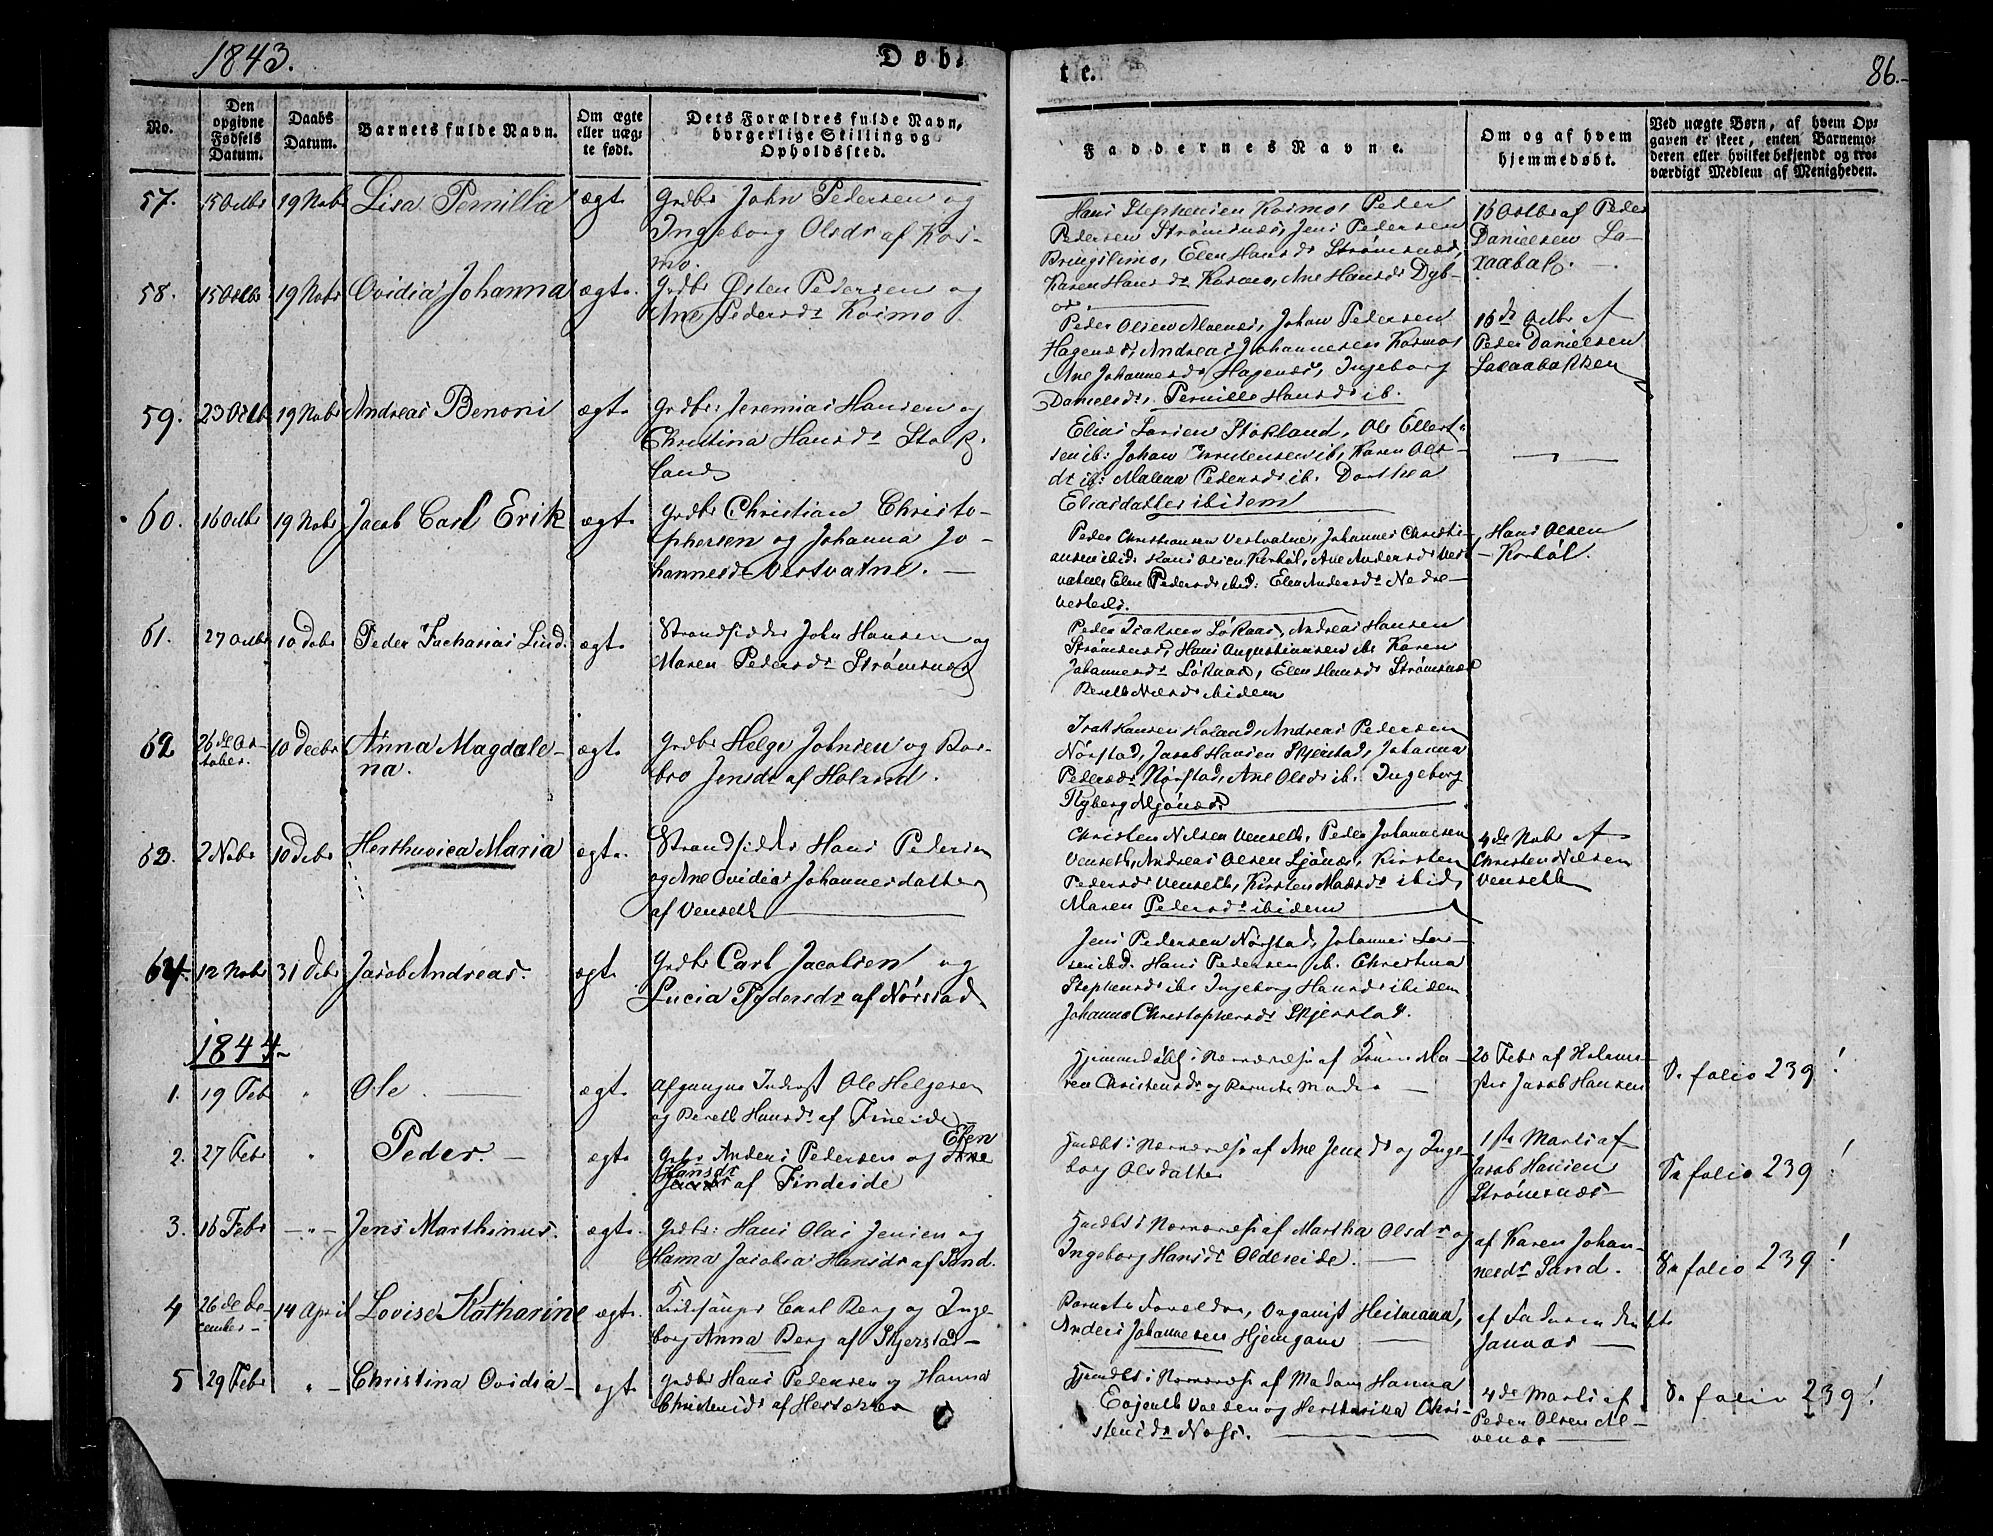 1843.
Døb-
te.
86.
No.
Den opgivne Fødsels Datum.
Daabs Datum.
Barnets fulde Navn.
Om ægte eller uægte født.
Dets Forældres fulde Navn, borgerlige Stilling og Opholdssted.
Faddernes Navne.
Om og af hvem hjemmedøbt.
Ved uægte Børn, af hvem Opgaven er skeet, enten Barnemoderen eller hvilket bekjendt og troværdigt Medlem af Menigheden.
57. 15 Octbr 19 Nobr Lisa Pernilla ægt. Grdbr John Pedersen og
Ingeborg Olsdr af Kos-
mo.
Hans Stephensen Kosmos Peder
Pedersen Strømsnæs, Jens Pedersen
Bringslimo, Elen Hansdr Strømsnæs,
Karen Hansdr Kosmo, Ane Hansdr Dyb-
16 Octbr af Peder
Danielsen La-
xaabak.
58. 15 Octbr 19 Nobr Ovidia Johanna ægt. Grdbr Østen Pedersen og
Ane Pedersdr Kosmo
Peder Olsen Moenes, Johan Pedersen
Hagenæs, Andreas Johannesen Kosmos
Ane Johannesdr Hagenæs, Ingeborg
Danielsdr, Pernille Hansdr ib.
16de Octbr af
Peder Danielsen
Laxaabakken
59. 23 Octb 19 Nobr Andreas Benoni ægt. Grdbr: Jeremias Hansen og
Christina Hansdr Stok-
land
Elias Larsen Stokland, Ole Ellert-
sen ib: Johan Christensen ib, Karen Ols-
dr ib: Malena Pedersdr ib. Dorthea
Eliasdatter ibidem
60. 16 Octbr 19 Nobr Jacob Carl Erik ægt. Grdbr Christian Christo-
phersen og Johanna Jo-
hannesdr Vestvatne.
Peder Christiansen Vestvatne, Johannes Christi-
ansen ibid: Hans Olsen Korhøl, Ane Andersdr Vest
vatne, Elen Pedersdr ibid: Elen Andersdr Nedre-
Hans Olsen
Korhøl.
61. 27 Octbr 10 Debr Peder Zacharias Lind. ægt. Strandsidder John Hansen og
Maren Pedersdr Strømsnæs
Peder Isaksen Løkaas, Andreas Hansen
Strømsnæs, Hans Augustinusen ib: Karen
Johannesdr Løkaas, Elen Hansdr Strømsnæs
Bereth Nilsdr ibidem
62 26de Oc-
tober. 10 Decbr Anna Magdale-
na. ægt. Grdbr Helge Johnsen og Bar-
bro Jensdr af Holand.
Isak Hansen Holand, Andreas Pedersen
Nørstad, Jacob Hansen Skjerstad, Johanna
Pedersdr Nørstad, Ane Olsdr ib. Ingeborg
Ryberg Mjønæs
63. 2 Nobr 10 Debr Herthuvica Maria ægt. Strandsidder Hans Pedersen
og Ane Ovidia Johannesdatter
af Venseth
Christen Nilsen Venseth, Peder Johannesen
Venseth, Andreas Olsen Ljønæs, Kirsten
Pedersdr Venseth, Kirsten Madsdr ibid,
Maren Pedersdr ibidem
4de Nobr af
Christen Nilsen
Venseth
64. 12 Nobr 31 Debr Jacob Andreas. ægt. Grdbr Carl Jacobsen og
Lucia Pedersdr af Nørstad
Jens Pedersen Nørstad, Johannes Lar-
sen ibd. Hans Pedersen ib. Christina
Stephensdr ibr Ingeborg Hansdr ibidem
Johanna Christophersdr Skjerstad.
1844
1. 19 Feb " Ole. ægt. afgangne Inderst Ole Helgesen
og Bereth Hansdr af Fineide
Hjemmedøbt i Nærværelse af Ma-
ren Christensdr og Barnets Moder
20 Febr af
Jacob Hansen
S. folio 239!
2. 27 Febr " Peder. ægt. Grbr Anders Pedersen og Elen
Hansdr af Findeide
Hmdbt i Nærværelse af Ane Jensdr og Inge-
borg Olsdatter
1ste Marts af
Jacob Hansen
Strømsnæs
Se folio 239!
3. 16 Febr " Jens Marthinus. ægt. Grdbr: Hans Olai Jensen og
Hanna Jacobia Hansdr af Sand.
Hmdbt i Nærværelse af Martha Olsdr og
Ingeborg Hansdr Oldereide.
af Karen Johan-
nesdr Sand.
Se folio 239!
4 26de De-
cember 14 April Lovise Katharine ægt. Kirkesanger Carl Berg og Inge-
borg Anna Berg af Skjerstad
Barnets Forældre, Organist Heitmann,
Anders Johannesen Hjemgam
af Faderen den
Januar
5 29 Febr " Christina Ovidia ægt. Grdbr Hans Pedersen og Hanna
Christensdr af
Hjemdbt i Nærværelse af Madam Hanna
og Herthvika Chri-
stensdr
4de Marts af
Peder Olsen Al-
venæs
Se folio 239!